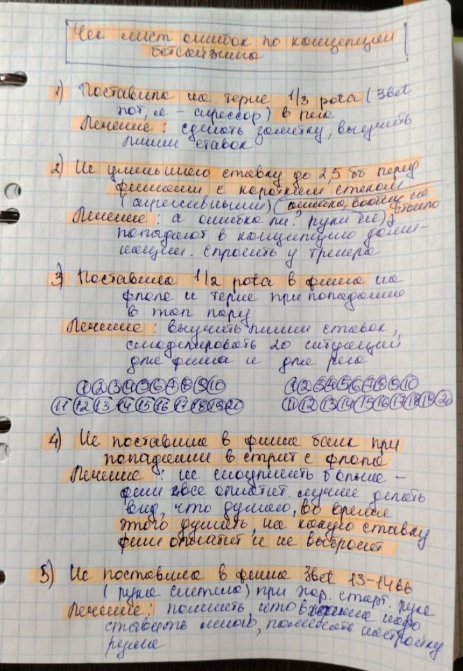 Чек лист ошибок по концепции
бетсайзинга
1) Поставила на терне 1/3 pota (3bet
пот, я - агрессор) в рега
Лечение: сделать заметку, выучить
линии ставок
2) Не уменьшила ставку до 2,5 бб перед
фишами с коротким стеком
(агрессивными) (ошибка, вообще не
Лечение: а ошибка ли? руки не стоило
попадают в концепцию доми-
нации. спросить у тренера
3) Поставила 1/2 pota в фиша на
флопе и терне при попадании
в топ пару
Лечение: выучить линии ставок,
смоделировать 20 ситуаций
для фиша и для рега
1 2 3 4 5 6 7 8 9 10 1 2 3 4 5 6 7 8 9 10
11 12 13 14 15 16 17 18 19 20 11 12 13 14 15 16 17 18 19 20
4) Не поставила в фиша банк при
попадании в стрит с флопа
Лечение: не скромнить больше -
фиш все оплатит. лучше делать
вид, что думаю, во время
этого думать, на какую ставку
фиш оплатит и не выбросит
5) Не поставила в фиша 3bet 13-14бб
(рука сильная) при хор. старт. руке
Лечение: помнить, что в фиша надо
ставить много, повесить настройку
румма